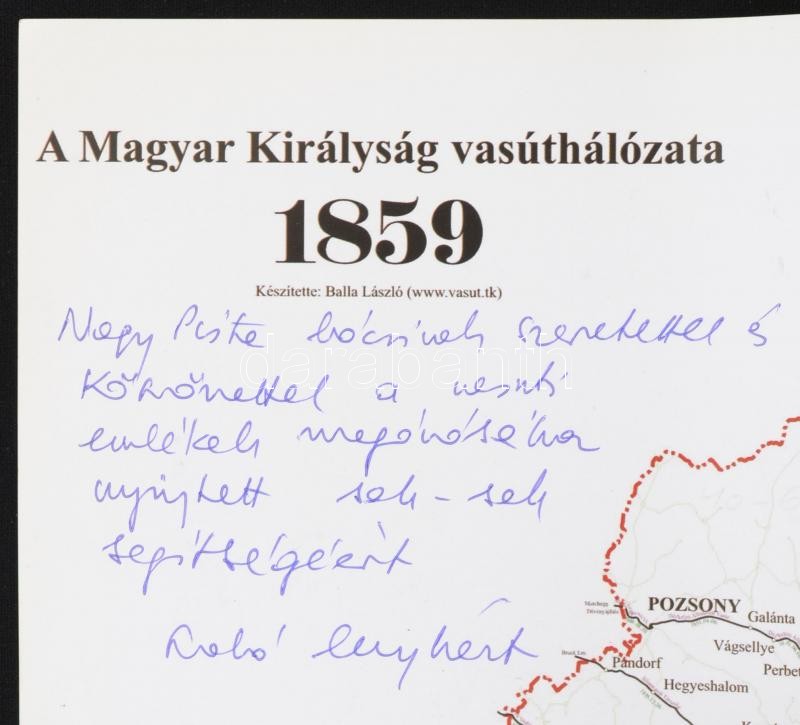 A Magyar Királyság vasúthálózata
1859
Készítette: Balla László (www.vasut.tk)
Nagy Pista bácsinak szeretettel és
Köszönettel a vasúti
emlékek megóvásához
nyújtott sok-sok
segítségéért
darabanth
Marchegg
Dévényújfalu
POZSONY
Galánta
Vágsellye
Perbet
Bruck
Pándorf
Hegyeshalom